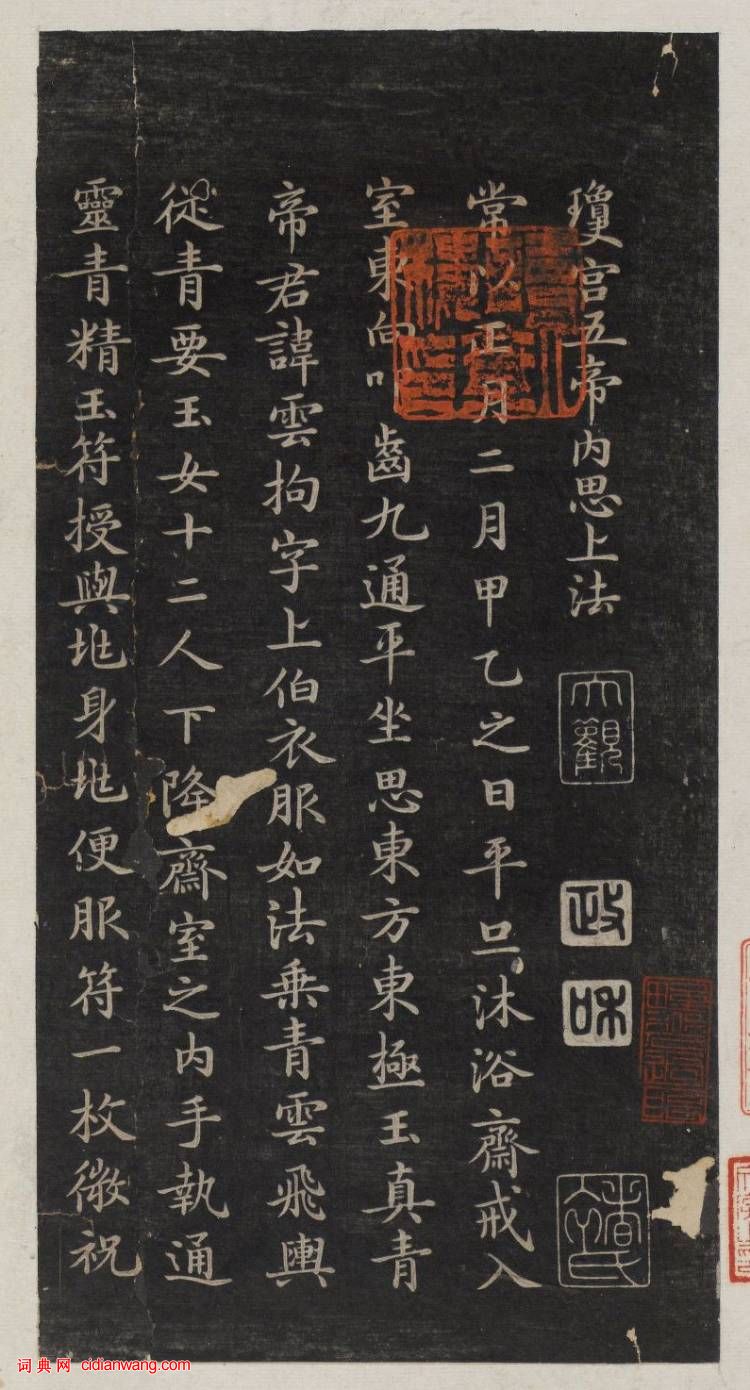 瓊宫五帝内思上法
常以正月二月甲乙之日平旦沐浴齋戒入
室東向叩齒九通平坐思東方東極玉真青
帝君諱雲拘字上伯衣服如法乘青雲飛輿
從青要玉女十二人下降齋室之内手執通
靈青精玉符授與兆身兆便服符一枚微祝
大觀
政和
词典网 cidianwang.com